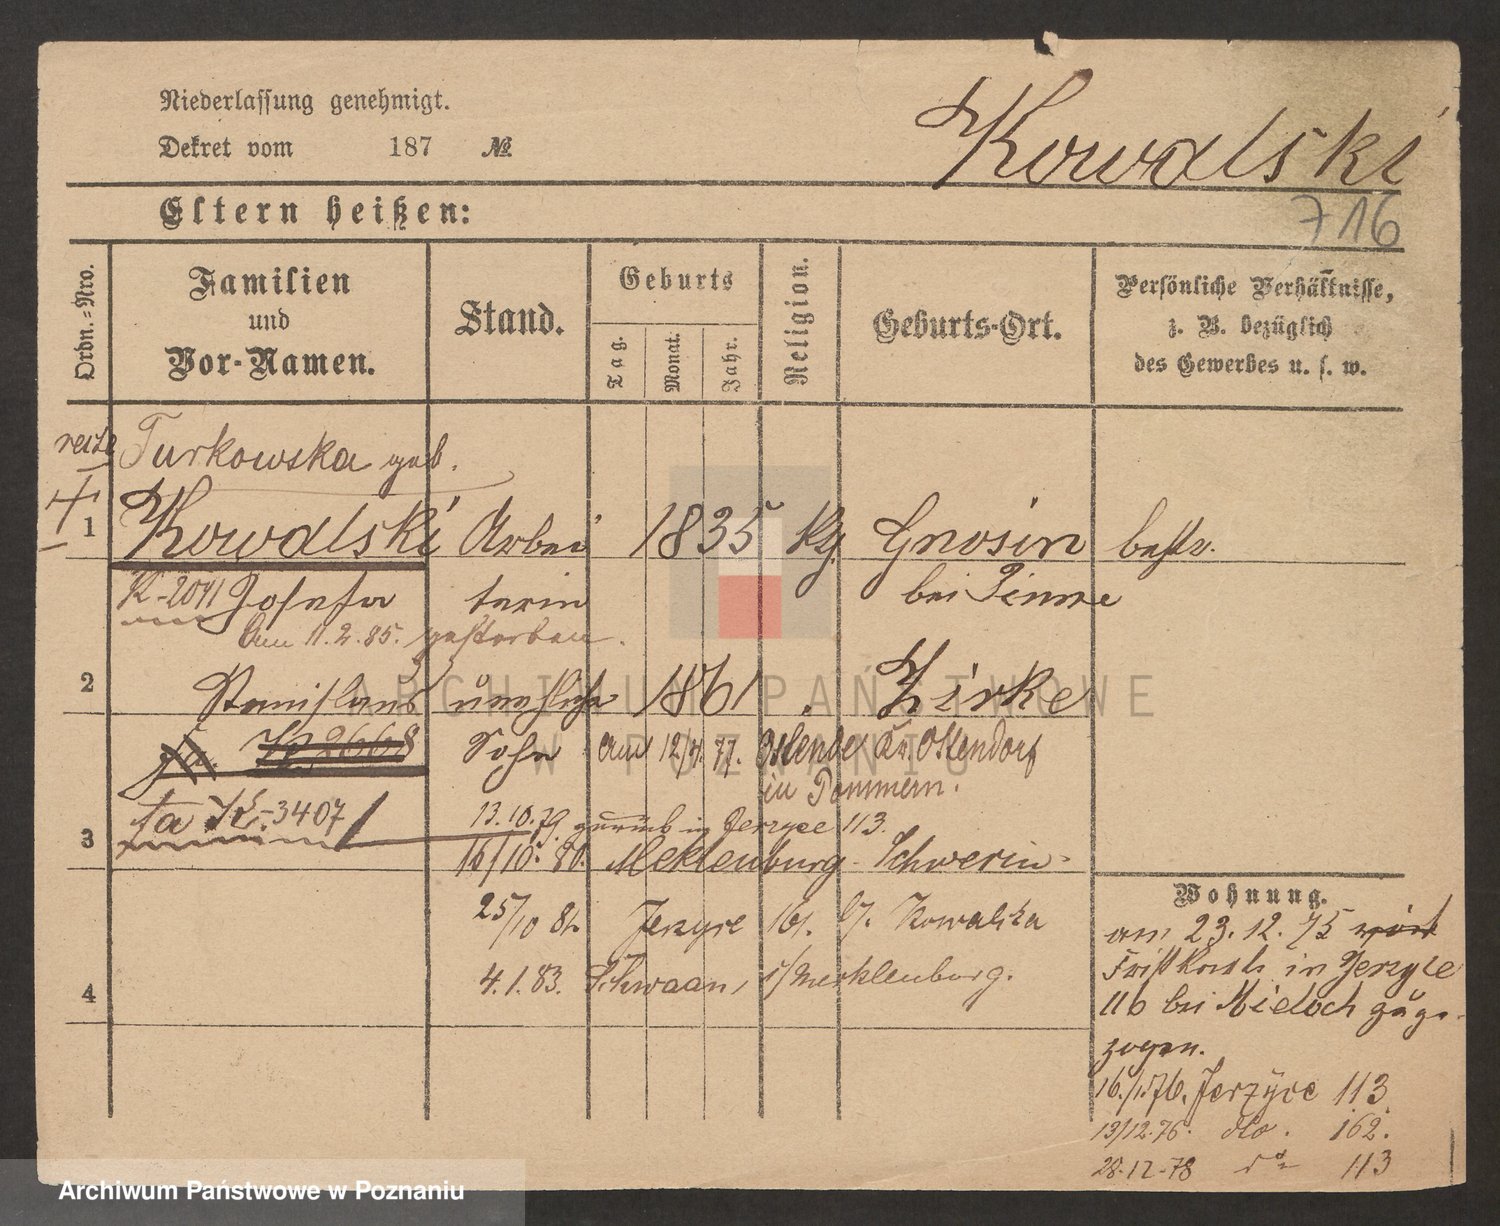 Niederlassung genehmigt.
Dekret vom 187 №
Kowalski
716
Eltern heißen:
Ordn.=Nro.
Familien
und
Vor-Namen.
Stand.
Geburts
Tag.
Monat.
Jahr.
Religion.
Geburts-Ort.
Persönliche Verhältnisse,
z. B. bezüglich
des Gewerbes u. s. w.
Turkowska geb.
1 Kowalski Arbei 1835 Gnosin bestr.
K-2041 Josefa terin bei Pinne
Am 11.2.85. gestorben.
2 Stanislaus unehlicher 1861 Zirke
Sohn
in Pommern.
K-3407
13.10.79. zurück in Jerzyce 113.
3
16/10. 80. Meklenburg-Schwerin
25/10 81. Jerzyce 161. b/. Kowalska
4 4.1.83. Schwaan, i/Mecklenburg.
Wohnung.
am 23.12.75
in Jerzyce
116 bei Mieloch zuge-
zogen.
16./1.76. Jerzyce 113
13/12.76. do. 162.
28.12.78 do 113
ARCHIWUM PAŃSTWOWE
W POZNANIU
Archiwum Państwowe w Poznaniu